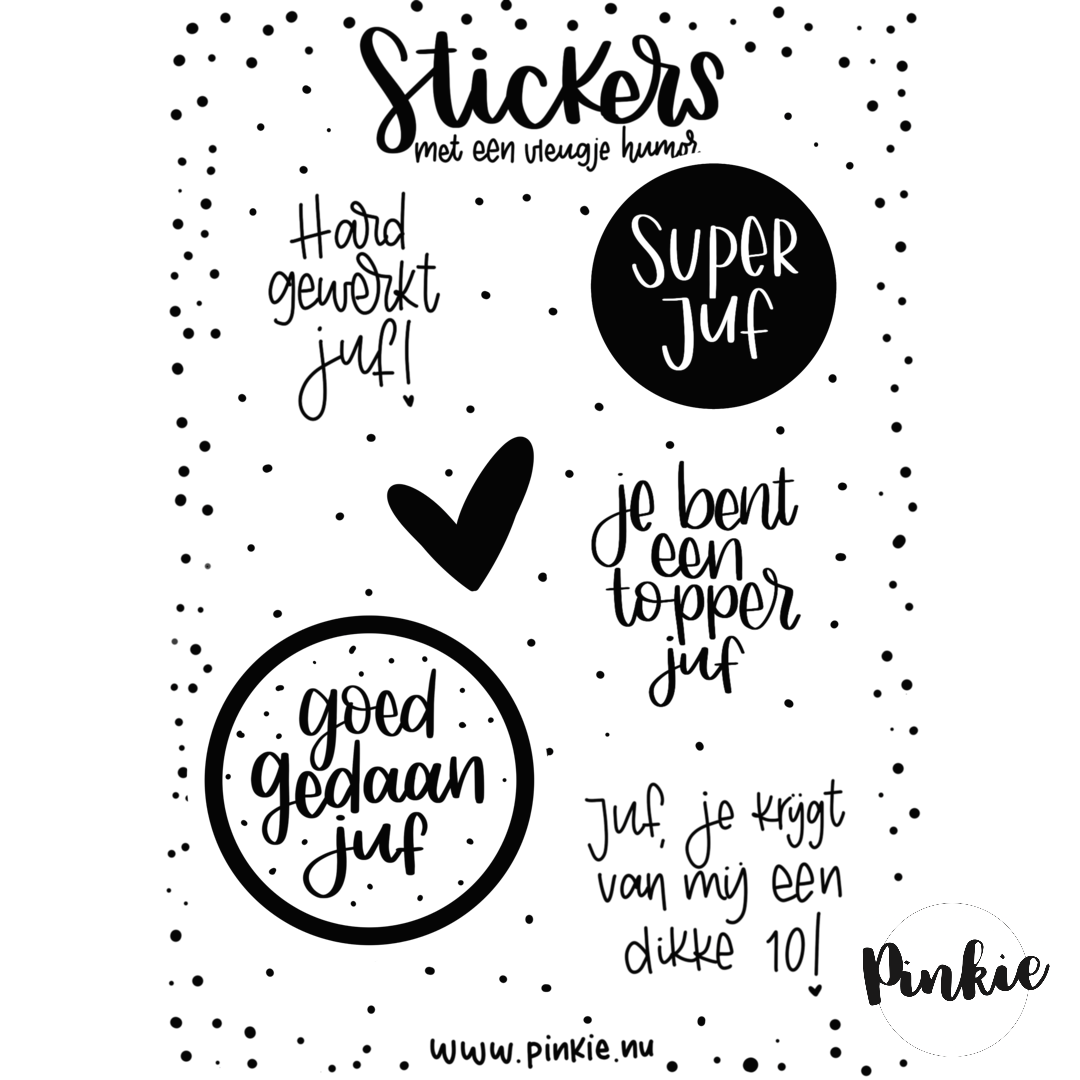 Stickers
met een vleugje humor.
Hard
gewerkt
juf!
SUPER
Juf
je bent
een
topper
juf
goed
gedaan
juf
Juf, je krijgt
van mij een
dikke 10!
Pinkie
www.pinkie.nu